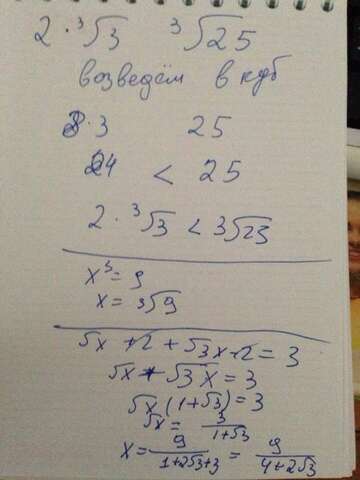 2 · ³√3 ³√25
возведём в куб
8·3 25
24 < 25
2 · ³√3 < ³√25
x³ = 9
x = ³√9
√x +2 + √3x -2 = 3
√x + √3x = 3
√x (1+√3) = 3
√x = 3/(1+√3)
x = 9/(1+2√3+3) = 9/(4+2√3)